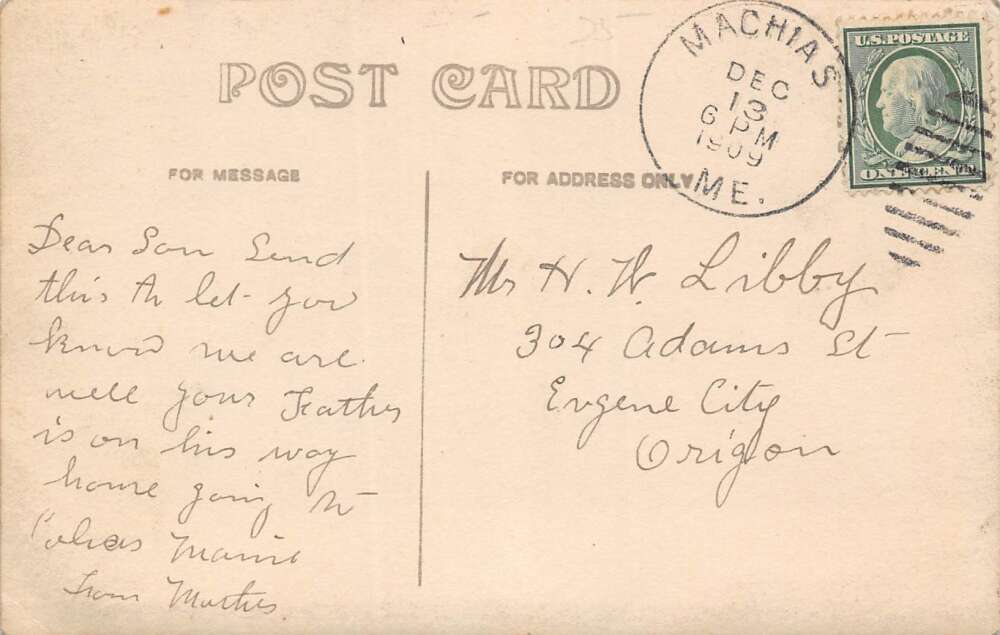 POST CARD
MACHIAS
DEC
13
6 PM
1909
ME.
U.S. POSTAGE
ONE CENT
FOR MESSAGE
FOR ADDRESS ONLY
Dear Son Send
this to let you
know we are
well your Father
is on his way
home going to
Maine
from Mother
Mr H. W. Libby
304 Adams St
Eugene City
Origon